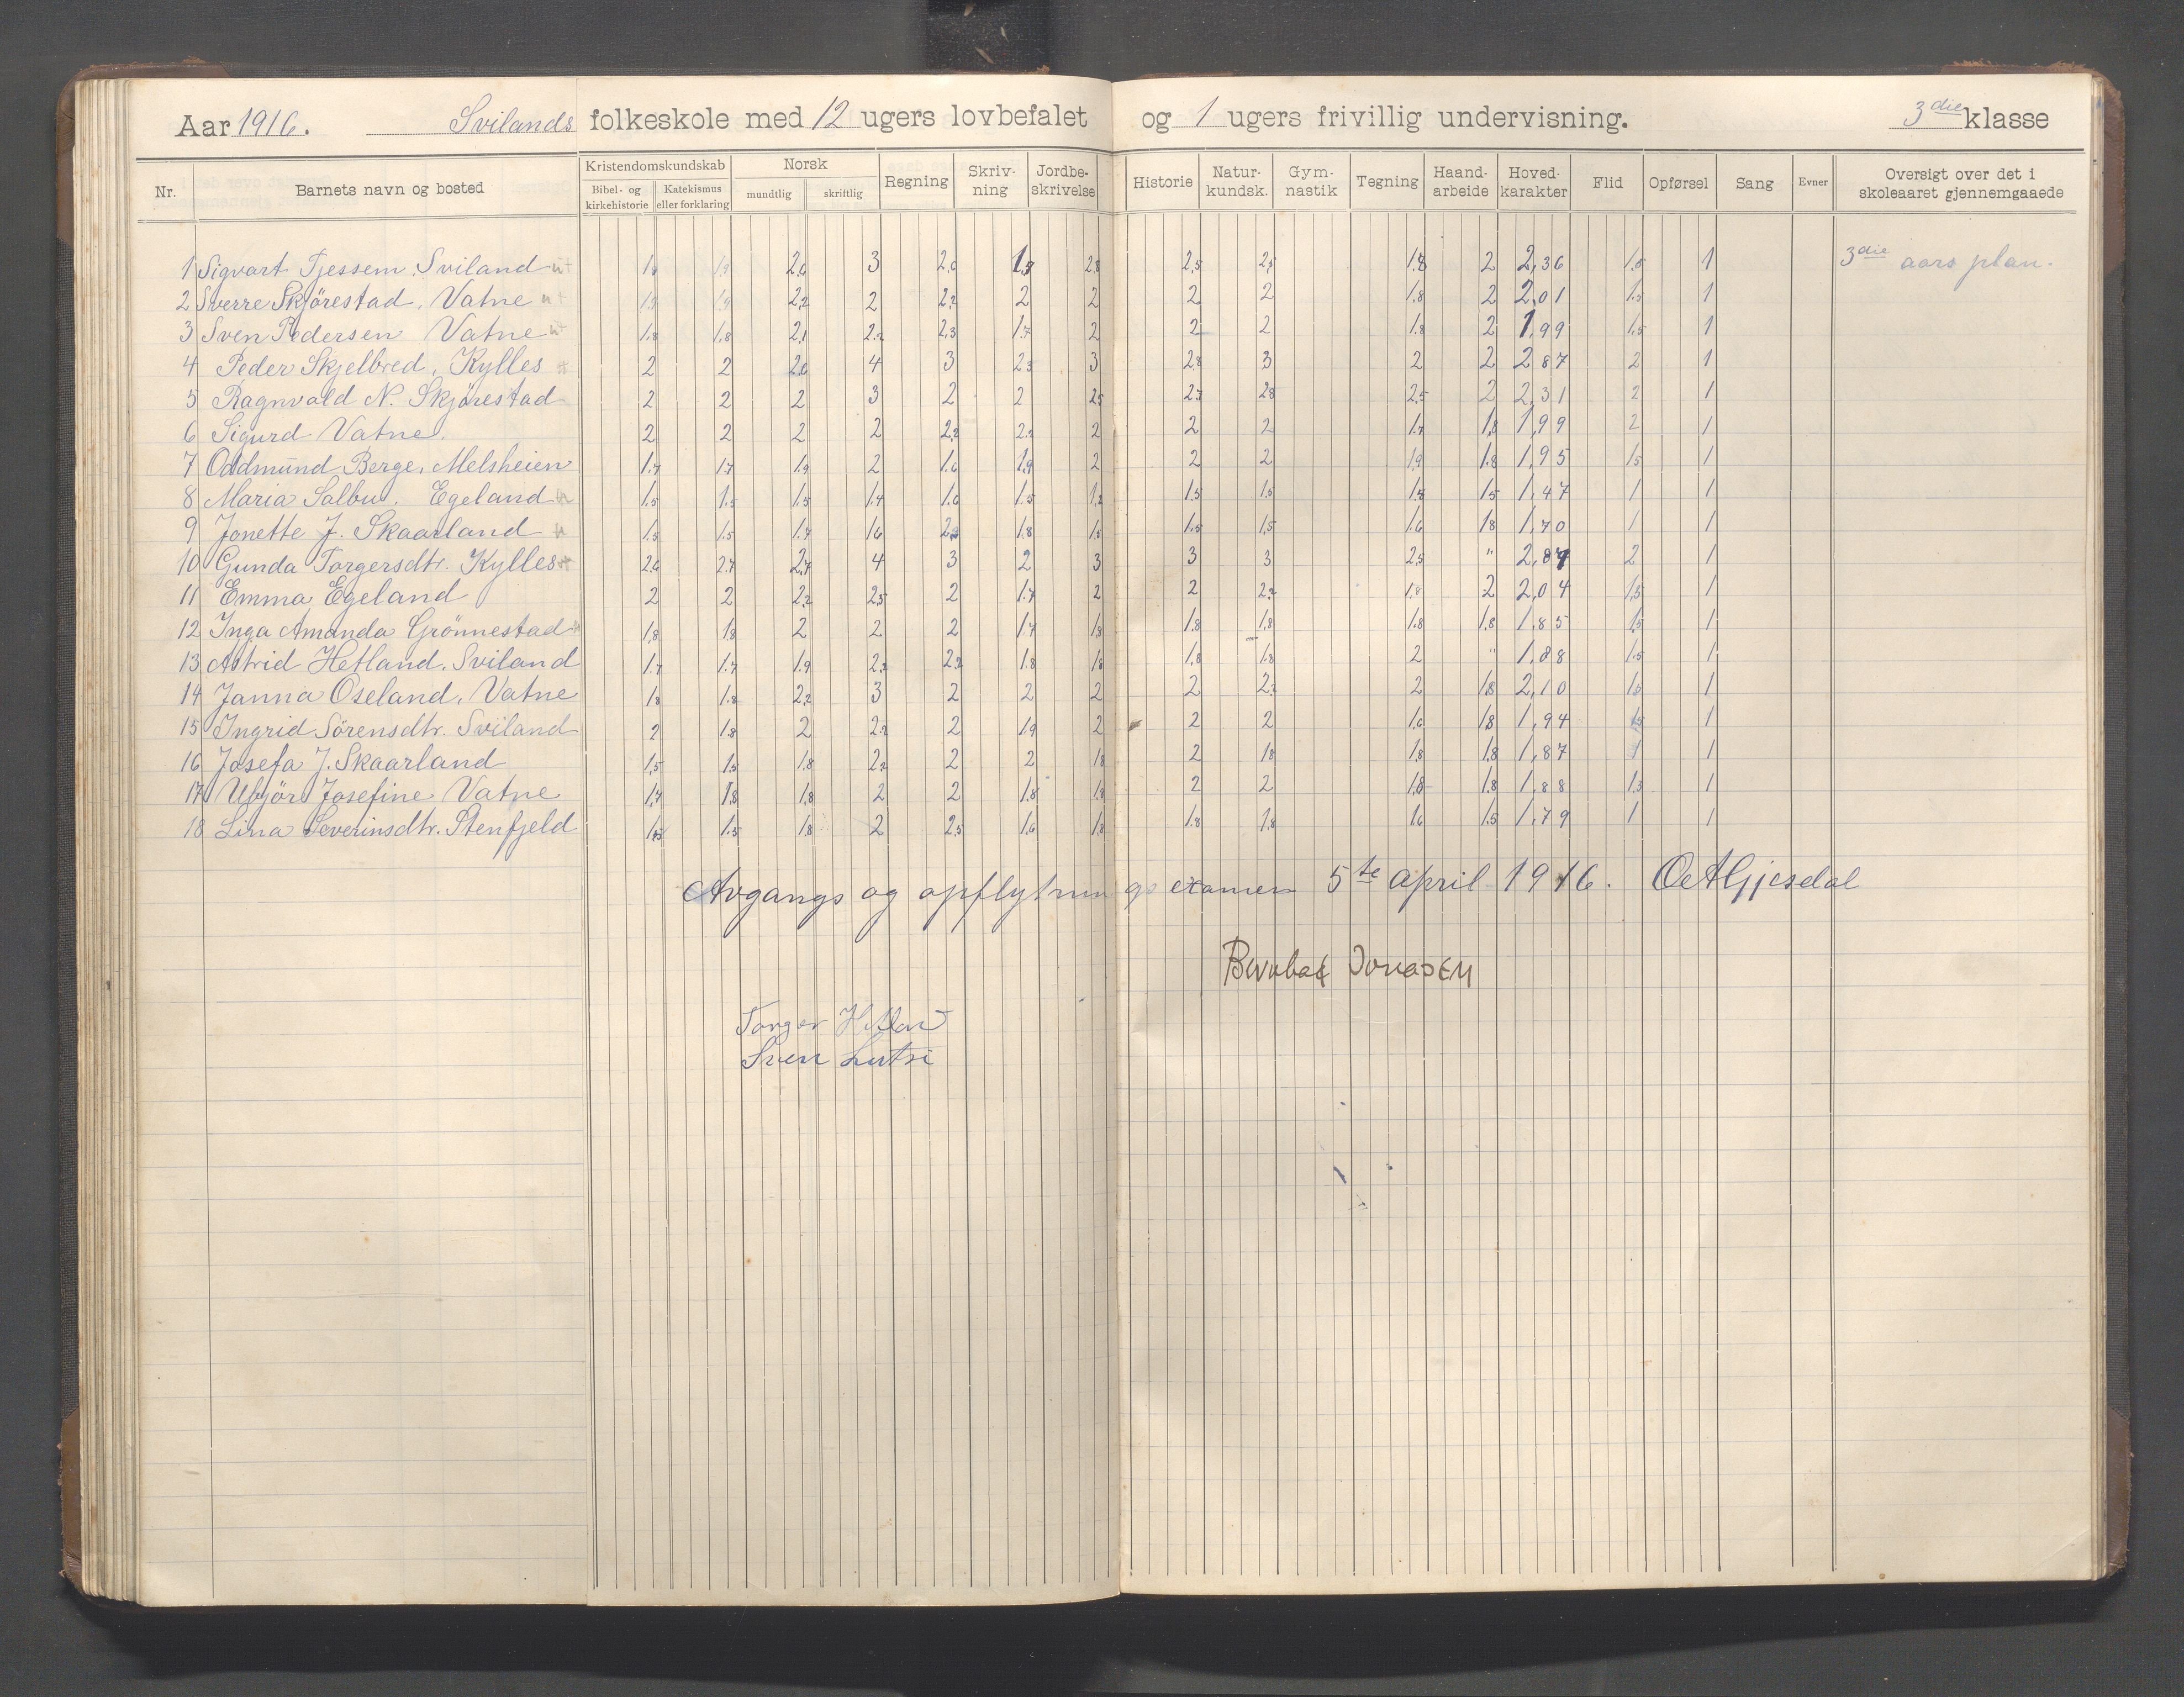 Aar 1916. Svilands folkeskole med 12 ugers lovbefalet og 1 ugers frivillig undervisning. 3die klasse
Nr. Barnets navn og bosted Kristendomskundskab Bibel- og kirkehistorie Katekismus eller forklaring Norsk mundtlig skriftlig Regning Skriv-ning Jordbe-skrivelse Historie Natur-kundsk. Gym-nastik Tegning Haand-arbeide Hoved-karakter Flid Opførsel Sang Evner Oversigt over det i skoleaaret gjennemgaaede
1 Sigvart Tjessem, Sviland 2,6 3 2,6 2,8 2,5 2,5 1.8 2 2,36 1.5 1 3die aars plan.
2 Sverre Skjörestad, Vatne 2,2 2 2,2 2 2 2 2 1.8 2 2,01 1.5 1
3 Sven Pedersen Vatne 1.8 1.8 2,1 2.2 2,3 1.7 2 2 2 1.8 2 1,99 1.5 1
4 Peder Skjelbred, Kylles 2 2 2,6 4 3 2 3 3 2,8 3 2 2 2 87 2 1
5 Ragnvald N. Skjörestad 2 2 2 3 2 2 2 5 2 7 2 8 2,5 2 2,31 2 1
6 Sigurd Vatne. 2 2 2 2 2,2 2.2 2 2 2 1.7 1,8 1,99 2 1
7 Oddmund Berge, Melsheien 1.7 1.7 1.9 2 1.6 1.9 2 2 2 1.9 1.8 1,95 1.5 1
8 Maria Salbu. Egeland 1.5 1.5 1.5 1.4 1.6 1.5 1,2 1.5 1.5 1.5 1.5 1,47 1 1
9 Jonette J. Skaarland 1.5 1.5 1.7 1 6 1.8 1.5 1.5 1.5 1.6 1 8 1,70 1 1
10 Gunda Torgersdtr. Kylles 2.6 2.7 2,7 4 3 2 3 3 3 2,5 " 2,87 2 1
11 Emma Egeland 2 2 2,2 2,5 2 1.7 2 2 2.2 1.8 2 2,04 1,5 1
12 Inga Amanda Grönnestad 1,8 1.8 2 2 2 1.7 1.8 1.8 1.8 1.8 1.8 1.85 1.5 1
13 Astrid Hetland. Sviland 1.7 1.7 1.9 2.2 2,2 1.8 1.8 1.8 1.8 2 " 1.88 1.5 1
14 Janna Oseland, Vatne 1.8 1.8 2,2 3 2 2 2 2 2.2 2 1.8 2,10 1.5 1
15 Ingrid Sörensdtr. Sviland 2 1.8 2 2.2 2 1.9 2 2 2 1.6 1.8 1,94 1.5 1
16 Josefa J. Skaarland 1,5 1.5 1.8 2.2 2 2 1.8 2 1.8 1.8 1.8 1,87 1 1
17 Josefine Vatne 1,7 1.8 1,8 2 2 1.8 1.8 2 2 1,8 1.8 1,88 1,3 1
18 Lina Severinsdtr. Stenfjeld 1.5 1.5 1.8 2 2,5 1.6 1.8 1.8 1,8 1.6 1.5 1,79 1 1
Avgangs og opflytningsexamen 5te april 1916.
Jonasen
Torger Hetland
Sven Lutsi